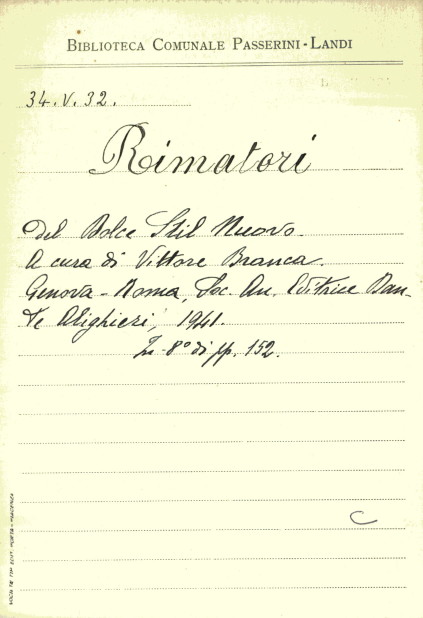 BIBLIOTECA COMUNALE PASSERINI-LANDI
34.V.32.
Rimatori
del Dolce Stil Nuovo.
A cura di Vittore Branca.
Genova-Roma, Soc. An. Editrice Dan-
te Alighieri, 1941.
In 8° di pp. 152.
C